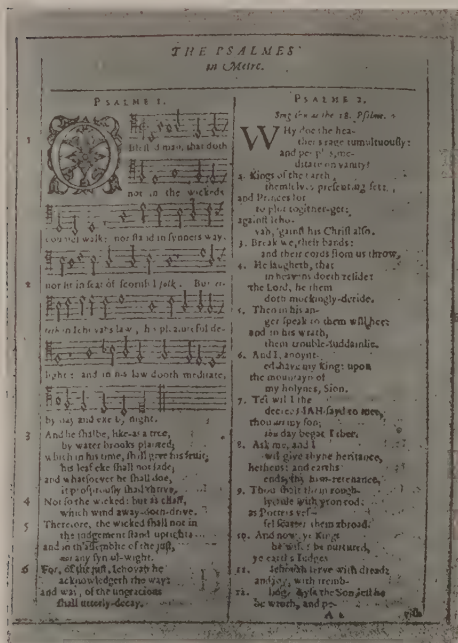 THE PSALMES
in Metre.
PSALME 1.
O
1
Blessed man, that doth
not in the wickeds
councel walk: nor stand in synners way.
2
nor sit in seat of scornful folk. But
in Jehovahs law, his pleasureful de-
light: and in his law dooth meditate,
by day and eke by night.
3 And he shalbe, like-as a tree,
by water brooks planted;
which in his time, shall give his fruit;
his leaf eke shall not fade;
and whatsoever he shall doe,
it prosperously shall thrive.
4 Not so the wicked: but as chaff,
which wind away-doth-drive.
5 Therefore, the wicked shall not in
the judgement stand upright:
and in th'assemblie of the just,
not any synful-wight.
6 For, of the just, Jehovah he
acknowledgeth the way:
and way, of the ungracious
shall utterly-decay.
PSALME 2.
Sing this as the 18. Psalme.
WHy doe the hea-
thens rage tumultuously:
and peoples me-
ditate on vanity?
2. Kings of the earth,
themselvs presenting sett,
and Princes for
to plot togither-get;
against Jeho-
vah, 'gainst his Christ also.
3. Break we, their bands:
and their cords from us throw,
4. He laugheth, that
in heavens doeth reside:
the Lord, he them
doth mockingly-deride.
5. Then in his an-
ger speak to them will hee:
and in his wrath,
them trouble-suddainlie.
6. And I, anoynt-
ed-have my King: upon
the mountayn of
my holynes, Sion.
7. Tel wil I the
decree; JAH sayd to mee,
thou art my son;
this day begat I thee.
8. Ask me, and I
wil give thyne heritance,
hethens: and earths
ends, thy
9. Thou shalt them rough-
ly-rule with yron rod:
as Potters ves-
sel scatter them abroad.
10. And now, ye Kings
be wise: be nurtured,
ye earths Judges
11. Jehovah serve with dread:
and joy, with tremb-
12. ling. Kyss the Son, lest he
be wroth, and pe-
A
rish